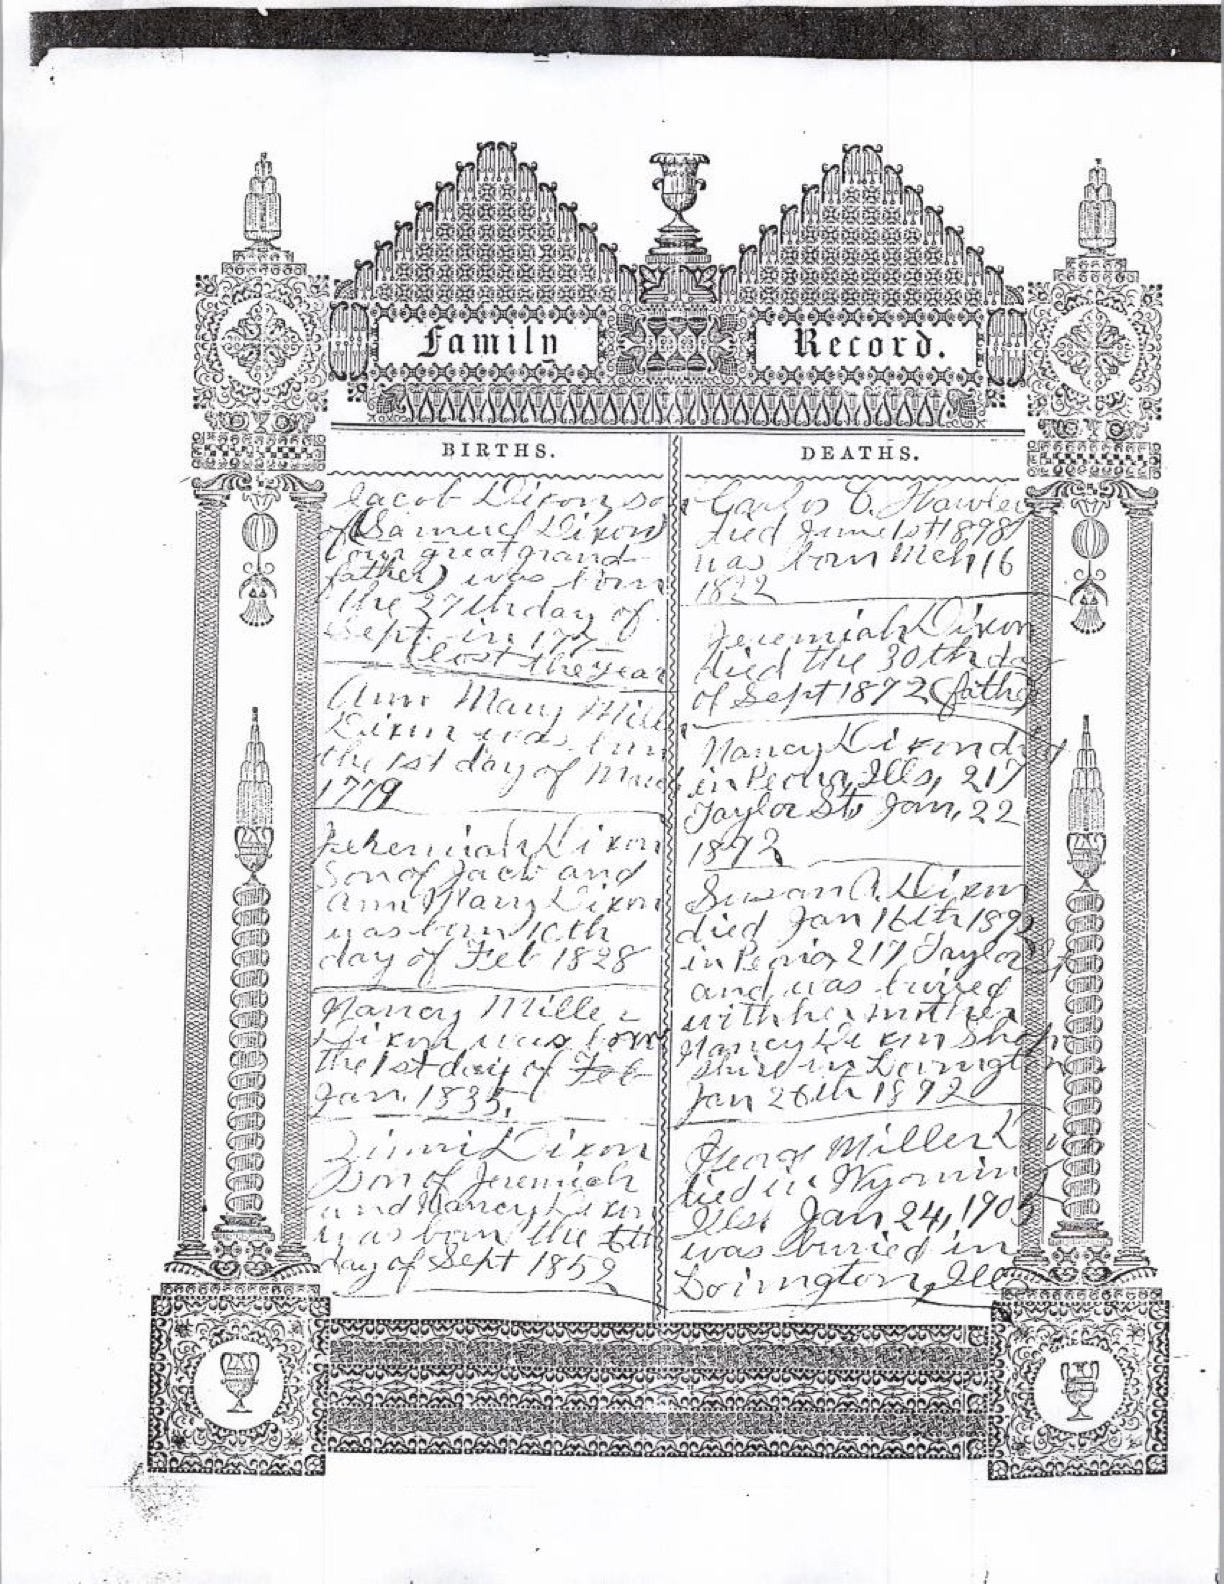 Family Record.
BIRTHS.
Jacob Dixon son
of Samuel Dixon
(our great grand
father) was born
the 27th day of
Sept. in 177
(lost the year
Ann Mary Mille
Dixon was born
the 1st day of March
1779
Jeremiah Dixon
Son of Jacob and
Ann Mary Dixon
was born 10th
day of Feb 1828
Nancy Miller
Dixon was born
the 1st day of Feb
Jan. 1835.
Dixon
Son of Jeremiah
and Nancy Dixon
was born the 6th
day of Sept 1852
DEATHS.
Carlos C. Hawley
died June 1st 1898
was born Mch 16
1822
Jeremiah Dixon
died the 30th da
of Sept 1872 (father
Nancy Dixon died
in Peoria, Ills, 217
Taylor St. Jan, 22
1892
Susan A. Dixon
died Jan 16th 1892
in Peoria 217 Taylor St
and was buried
with her mother
Nancy Dixon
in
Jan 26th 1892
George Miller
died in Wyoming
Ills. Jan 24, 1905
was buried in
Ills